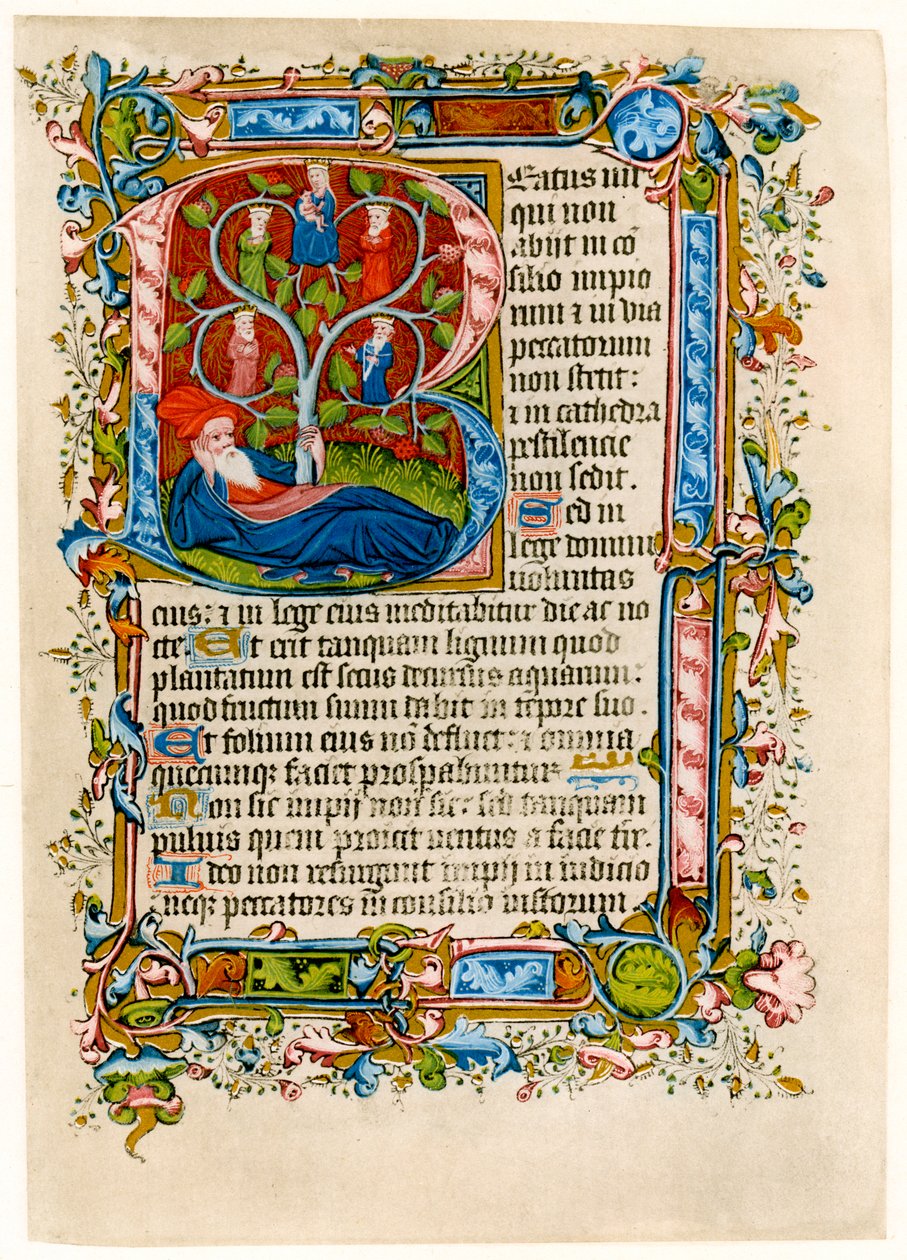 Beatus vir
qui non
abijt in cō
silio impio
rum ⁊ in via
peccatorum
non stetit:
⁊ in cathedra
pestilencie
non sedit.
Sed in
lege domini
uoluntas
eius: ⁊ in lege eius meditabitur die ac no
cte. Et erit tanquam lignum quod
plantatum est secus decursus aquarum:
quod fructum suum dabit in tēpore suo.
Et folium eius nō defluet: ⁊ omnia
quecunqꝫ faciet prosꝑabuntur
Non sic impij non sic: sed tanquam
puluis quem proicit uentus a facie tr̄e.
Ideo non resurgunt impij in iudicio
neqꝫ peccatores in consilio iustorum